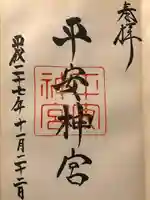 奉拝
平安神宮
平成二十七年十一月二十二日